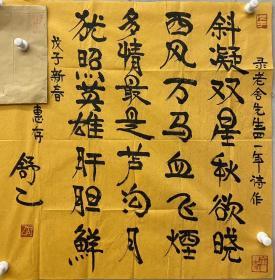 录老舍先生四一年诗作
斜凝双星秋欲晓
西风万马血飞烟
多情最是芦沟月
犹照英雄肝胆鲜
戊子新春
惠存
舒乙